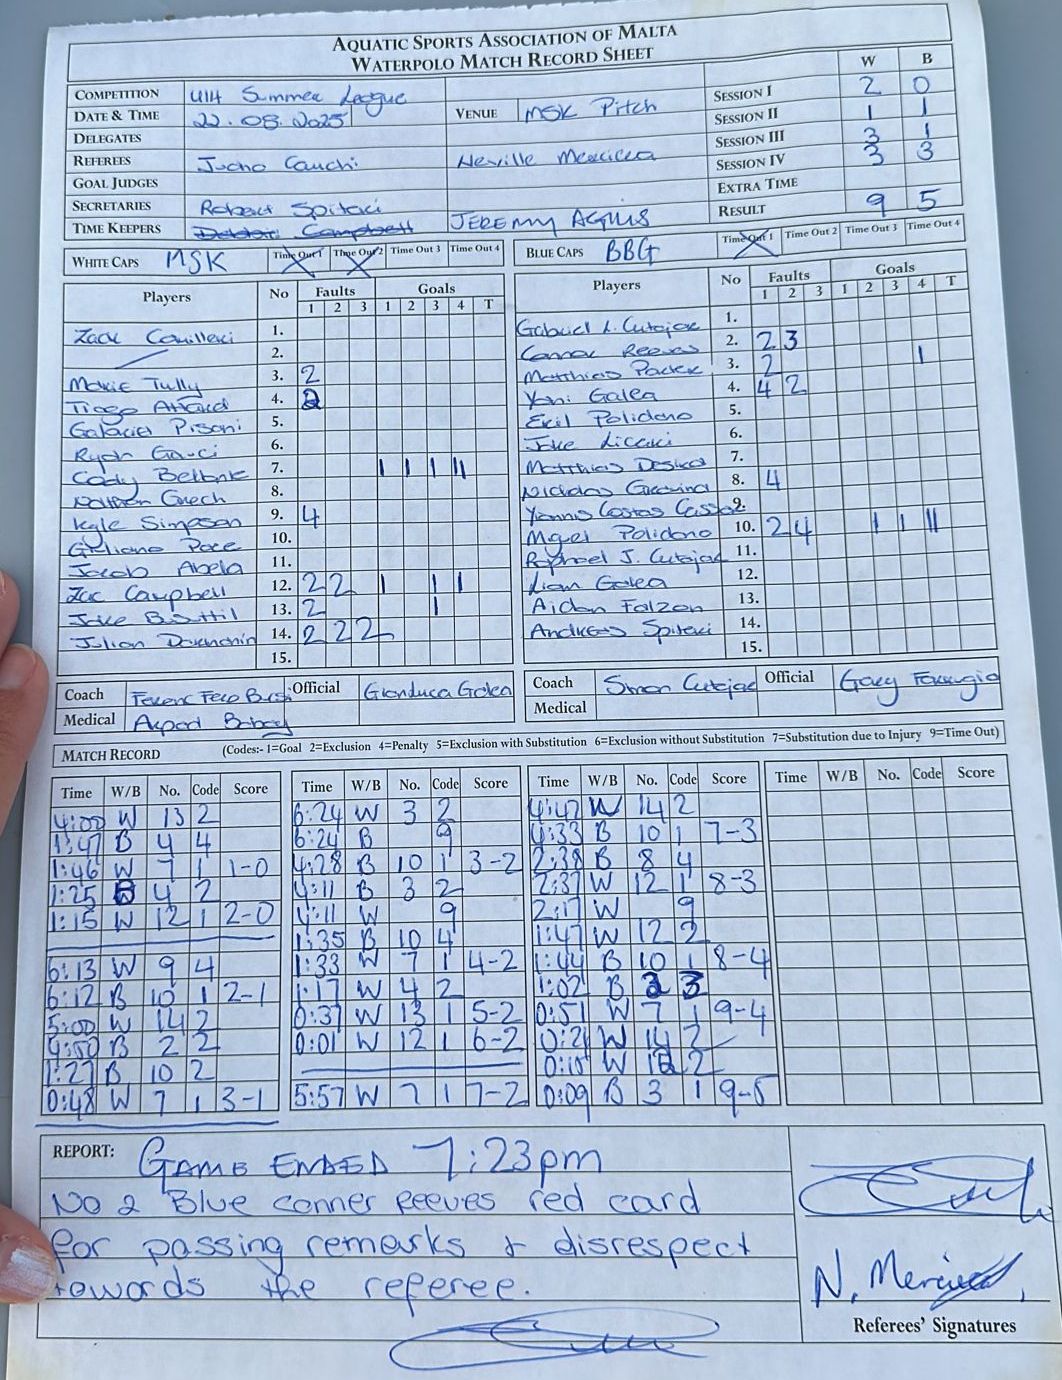 AQUATIC SPORTS ASSOCIATION OF MALTA
WATERPOLO MATCH RECORD SHEET
W B
COMPETITION U14 Summer League SESSION I 2 0
DATE & TIME 22.08.2025 VENUE MSK Pitch SESSION II 1 1
DELEGATES SESSION III 3 1
REFEREES Cauchi Neville SESSION IV 3 3
GOAL JUDGES EXTRA TIME
SECRETARIES Robert Spiteri RESULT 9 5
TIME KEEPERS Campbell JEREMY AGIUS
WHITE CAPS MSK Time Out 1 Time Out 2 Time Out 3 Time Out 4
BLUE CAPS BBG Time Out 1 Time Out 2 Time Out 3 Time Out 4
Players No Faults Goals
1 2 3 1 2 3 4 T
Zack Camilleri 1.
2.
Tully 3. 2
Tiago Attard 4. 2
Pisani 5.
Ryan Gauci 6.
Cody 7. | | | ||
Grech 8.
Kyle Simpson 9. 4
Giuliano Pace 10.
Jacob Abela 11.
Zac Campbell 12. 2 2 | | |
Jake Busuttil 13. 2 |
Julian 14. 2 2 2
15.
Players No Faults Goals
1 2 3 1 2 3 4 T
Gabriel L. Cutajar 1.
Connor Reeves 2. 2 3
Matthias 3. 2 |
Yani Galea 4. 4 2
Polidano 5.
Jake Licari 6.
Matthias 7.
Nicholas 8. 4
Yannis Costas 9.
Miguel Polidano 10. 2 4 | | ||
Raphael J. Cutajar 11.
Lian Galea 12.
Aidan Falzon 13.
Andreas Spiteri 14.
15.
Coach Ferenc Official Gianluca Galea
Medical Arpad
Coach Simon Cutajar Official Gary Farrugia
Medical
MATCH RECORD (Codes:- 1=Goal 2=Exclusion 4=Penalty 5=Exclusion with Substitution 6=Exclusion without Substitution 7=Substitution due to Injury 9=Time Out)
Time W/B No. Code Score
4:00 W 13 2
1:47 B 4 4
1:46 W 7 1 1-0
1:25 B 4 2
1:15 W 12 1 2-0
6:13 W 9 4
6:12 B 10 1 2-1
5:00 W 14 2
4:50 B 2 2
1:27 B 10 2
0:48 W 7 1 3-1
Time W/B No. Code Score
6:24 W 3 2
6:24 B 9
4:28 B 10 1 3-2
4:11 B 3 2
4:11 W 9
1:35 B 10 4
1:33 W 7 1 4-2
1:17 W 4 2
0:37 W 13 1 5-2
0:01 W 12 1 6-2
5:57 W 7 1 7-2
Time W/B No. Code Score
4:47 W 14 2
4:33 B 10 1 7-3
2:38 B 8 4
2:37 W 12 1 8-3
2:17 W 9
1:47 W 12 2
1:44 B 10 1 8-4
1:02 B 2 3
0:51 W 7 1 9-4
0:21 W 14 2
W 12 2
0:09 B 3 1 9-5
Time W/B No. Code Score
REPORT: GAME ENDED 7:23pm
No 2 Blue conner Reeves red card
for passing remarks & disrespect
towards the referee.
Referees' Signatures